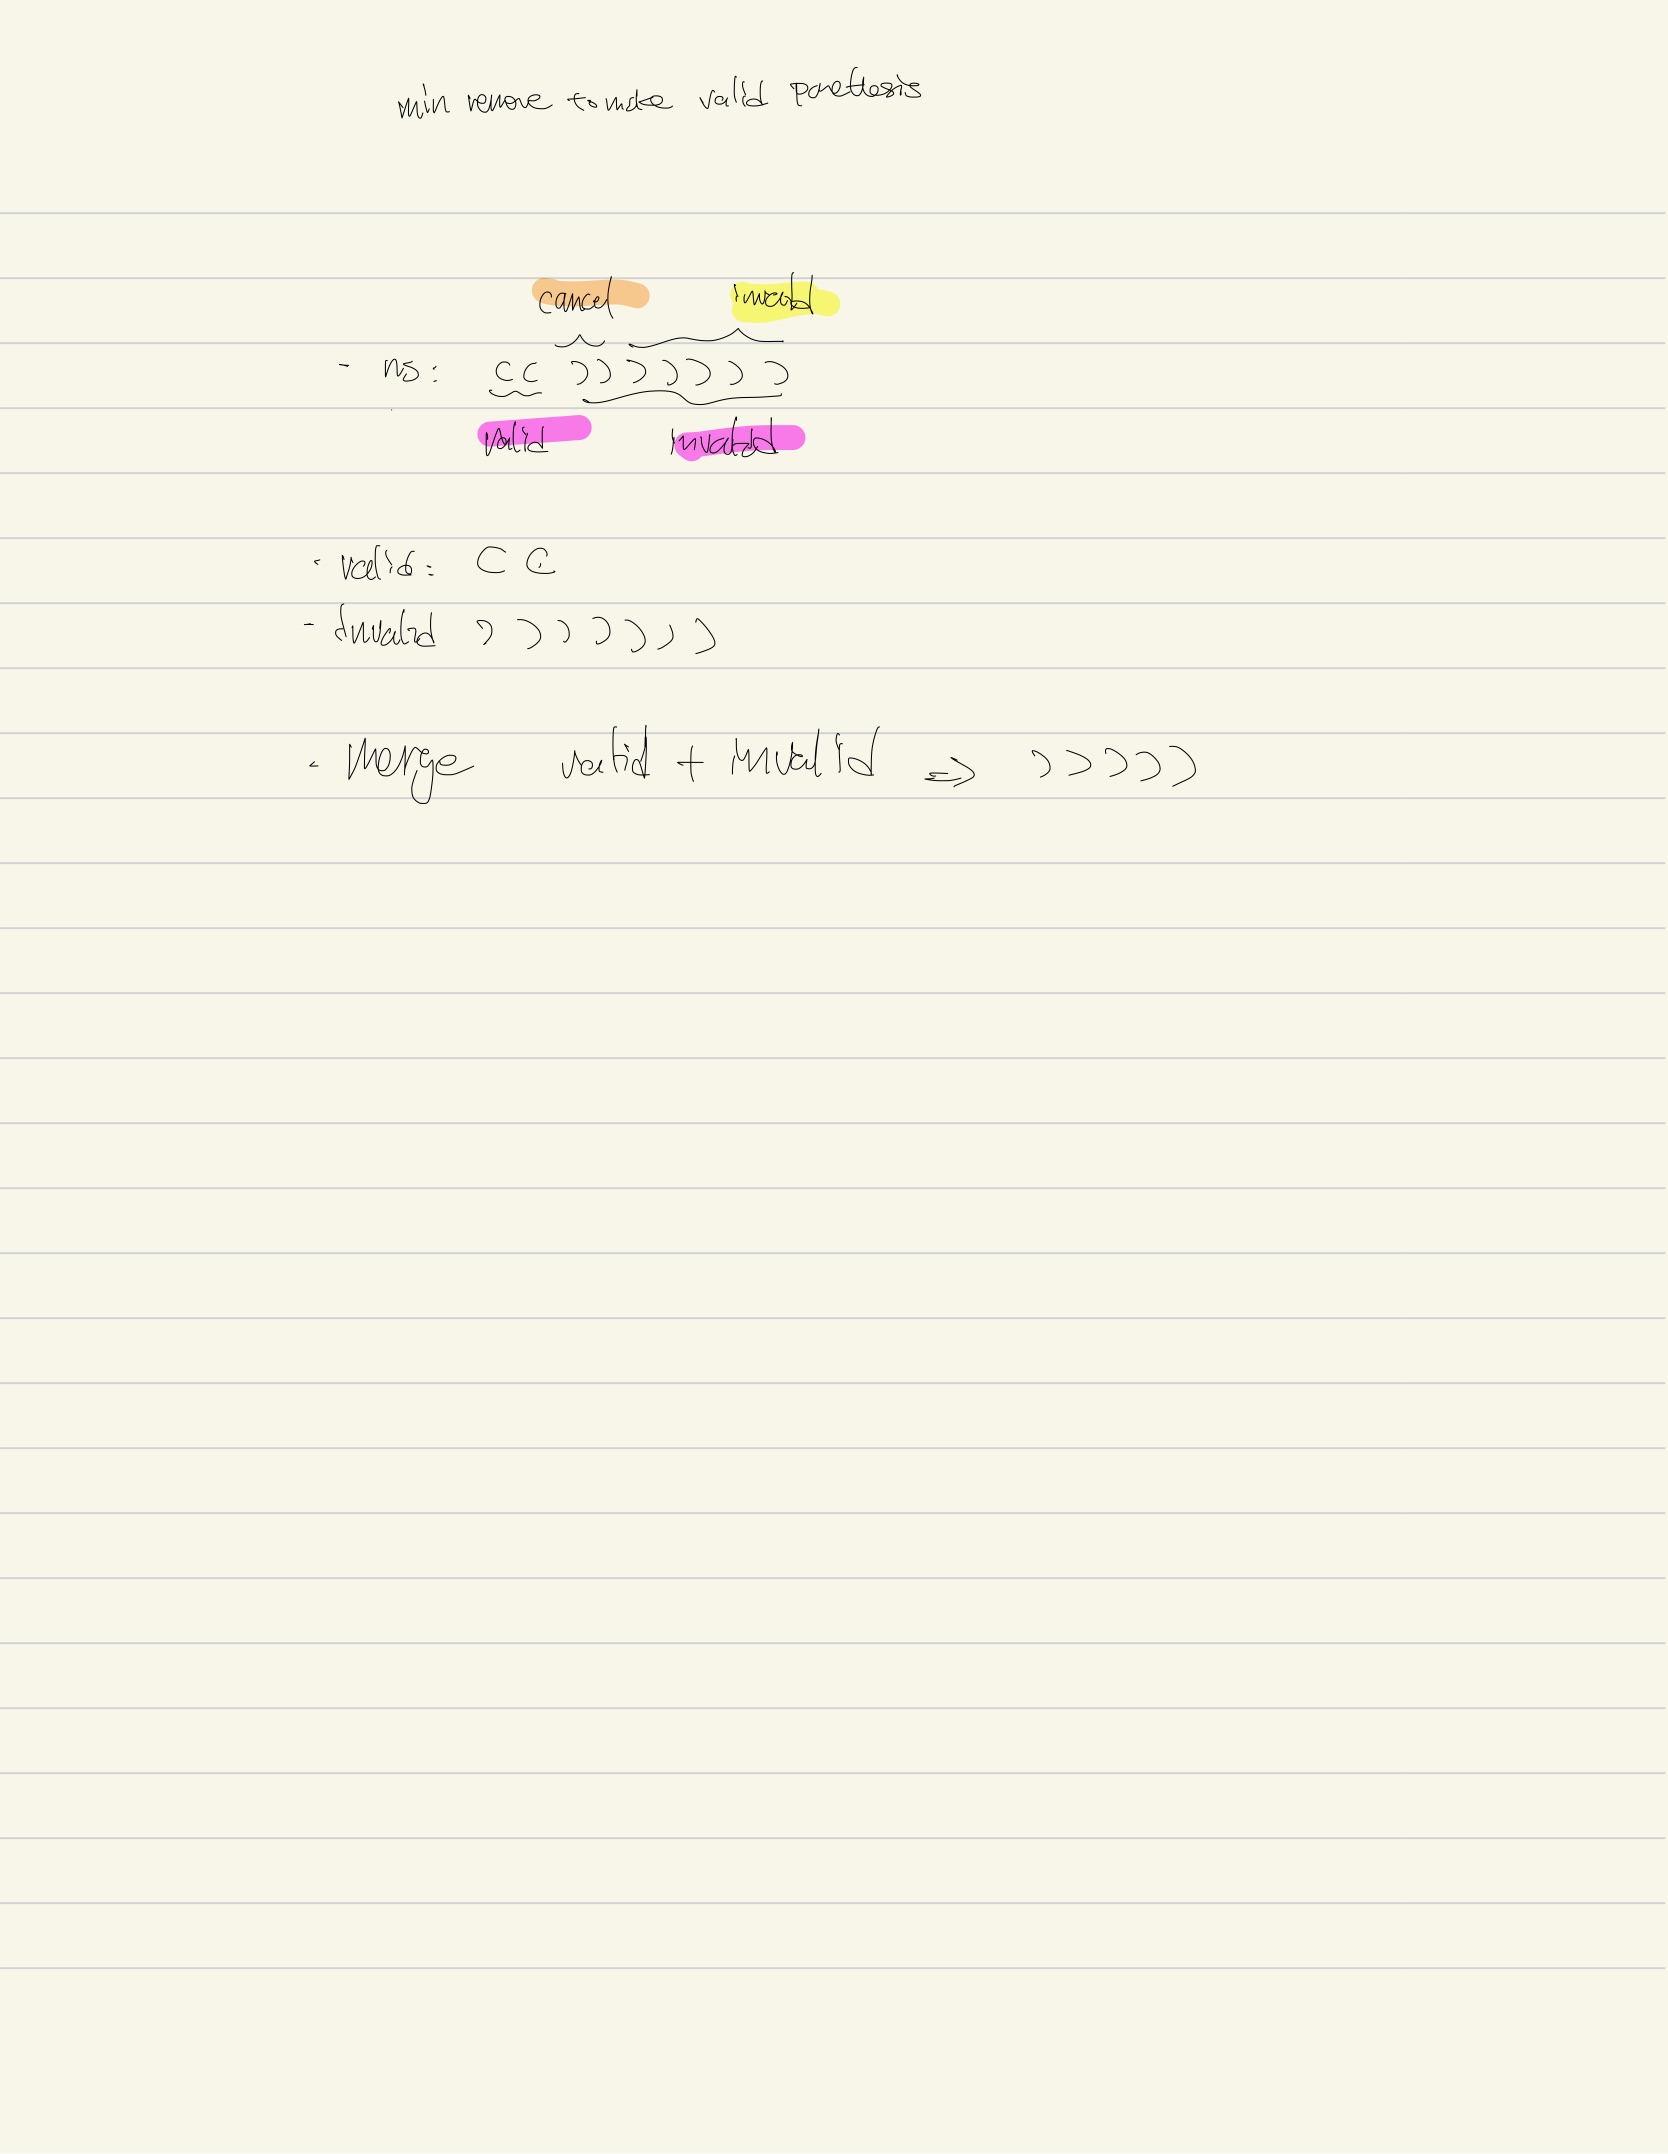 min remove to make valid parethesis
cancel invalid
- ns: ( ( ) ) ) ) ) ) )
valid invalid
- valid: ( (
- Invalid ) ) ) ) ) ) )
- Merge valid + invalid => ) ) ) ) )